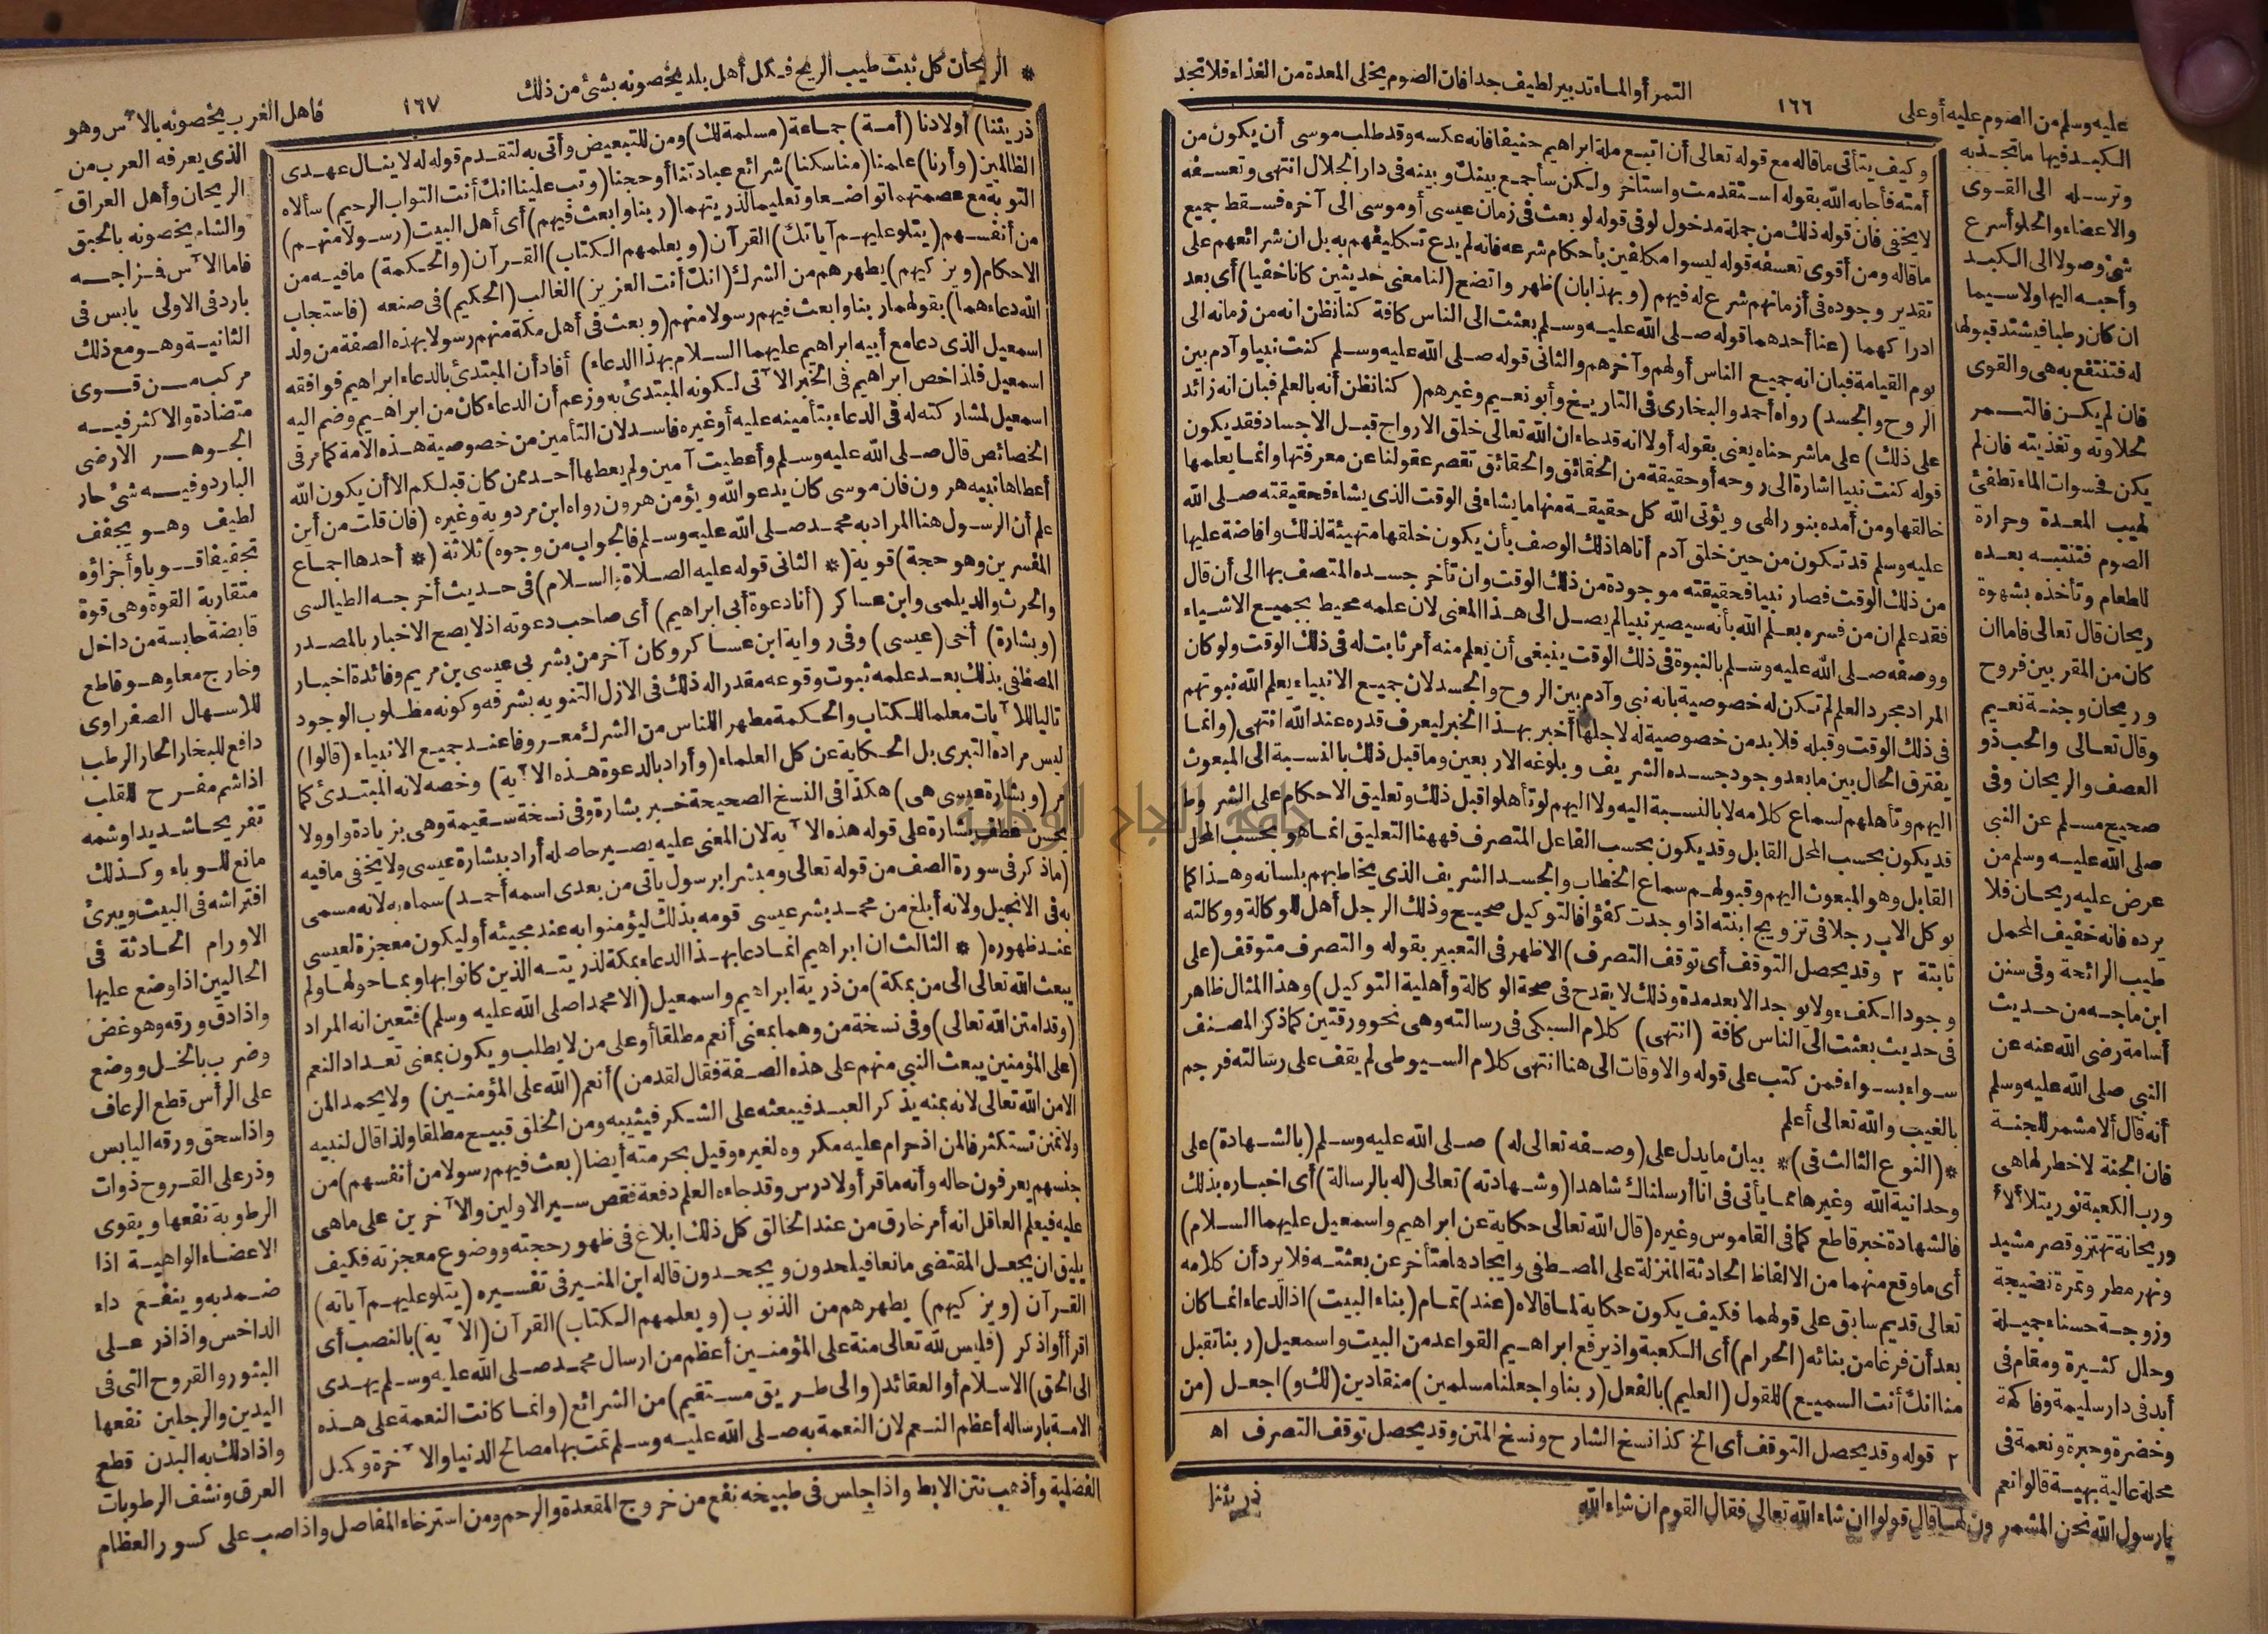 عليه وسلم من الصوم عليه أو على
١٦٦
التمر أو الماء تدبير لطيف جدا فان الصوم يخلى المعدة من الغذاء فلا تجد
الكبد فيها ما تجذبه
وترسله الى القوى
والاعضاء والحلو أسرع
شئ وصولا الى الكبد
وأحبه اليها ولا سيما
ان كان رطبا فيشتد قبولها
له فتنتفع به هى والقوى
فان لم يكن فالتمر
لحلاوته وتغذيته فان لم
يكن فحسوات الماء تطفئ
لهيب المعدة وحرارة
الصوم فتنتبه بعده
للطعام وتأخذه بشهوة
ريحان قال تعالى فاما ان
كان من المقربين فروح
وريحان وجنة نعيم
وقال تعالى والحب ذو
العصف والريحان وفى
صحيح مسلم عن النبى
صلى الله عليه وسلم من
عرض عليه ريحان فلا
يرده فانه خفيف المحمل
طيب الرائحة وفى سنن
ابن ماجه من حديث
أسامة رضى الله عنه عن
النبى صلى الله عليه وسلم
أنه قال ألا مشمر للجنة
فان الجنة لا خطر لها هى
ورب الكعبة نور يتلألأ
وريحانة تهتز وقصر مشيد
ونهر مطرد وثمرة نضيجة
وزوجة حسناء جميلة
وحلل كثيرة ومقام فى
أبد فى دار سليمة وفاكهة
وخضرة وحبرة ونعمة فى
محلة عالية بهية قالوا نعم
يارسول الله نحن المشمرون لها قال قولوا ان شاء الله تعالى فقال القوم ان شاء الله
وكيف يتأتى ما قاله مع قوله تعالى أن اتبع ملة ابراهيم حنيفا فانه عكسه وقد طلب موسى أن يكون من
أمته فأجابه الله بقوله استقدمت واستاخر ولكن سأجمع بينك وبينه فى دار الجلال انتهى وتعسفه
لا يخفى فان قوله ذلك من جملة مدخول لو فى قوله لو بعث فى زمان عيسى أو موسى الى آخره فسقط جميع
ما قاله ومن أقوى تعسفه قوله ليسوا مكلفين بأحكام شرعه فانه لم يدع تكليفهم به بل ان شرائعهم على
تقدير وجوده فى أزمانهم شرع له فيهم (وبهذا بان) ظهر واتضح (لنا معنى حديثين كانا خفيا) أى بعد
ادراكهما (عنا أحدهما قوله صلى الله عليه وسلم بعثت الى الناس كافة كنا نظن انه من زمانه الى
يوم القيامة فبان انه جميع الناس أولهم وآخرهم والثانى قوله صلى الله عليه وسلم كنت نبيا وآدم بين
الروح والجسد) رواه أحمد والبخارى فى التاريخ وأبو نعيم وغيرهم (كنا نظن أنه بالعلم فبان انه زائد
على ذلك) على ما شرحناه يعنى بقوله أولا انه قد جاء ان الله تعالى خلق الارواح قبل الاجساد فقد يكون
قوله كنت نبيا اشارة الى روحه أو حقيقة من الحقائق والحقائق تقصر عقولنا عن معرفتها وانما يعلمها
خالقها ومن أمده بنور الهى ويؤتى الله كل حقيقة منها ما يشاء فى الوقت الذى يشاء فحقيقته صلى الله
عليه وسلم قد تكون من حين خلق آدم أتاها ذلك الوصف بأن يكون خلقها متهيئة لذلك وافاضة عليها
من ذلك الوقت فصار نبيا فحقيقته موجودة من ذلك الوقت وان تأخر جسده المتصف بها الى أن قال
فقد علم ان من فسره بعلم الله بأنه سيصير نبيا لم يصل الى هذا المعنى لان علمه محيط بجميع الاشياء
ووصفه صلى الله عليه وسلم بالنبوة فى ذلك الوقت ينبغى أن يعلم منه أمر ثابت له فى ذلك الوقت ولو كان
المراد مجرد العلم لم تكن له خصوصية بانه نبى وآدم بين الروح والجسد لان جميع الانبياء يعلم الله نبوتهم
فى ذلك الوقت وقبله فلا بد من خصوصية له لاجلها أخبر بهذا الخبر ليعرف قدره عند الله انتهى (وانما
يفترق الحال بين ما بعد وجود جسده الشريف وبلوغه الاربعين وما قبل ذلك بالنسبة الى المبعوث
اليهم وتأهلهم لسماع كلامه لا بالنسبة اليه ولا اليهم لو تأهلوا قبل ذلك وتعليق الاحكام على الشروط
قد يكون بحسب المحل القابل وقد يكون بحسب الفاعل المتصرف فههنا التعليق انما هو بحسب المحل
القابل وهو المبعوث اليهم وقبولهم سماع الخطاب والجسد الشريف الذى يخاطبهم بلسانه وهذا كما
يوكل الاب رجلا فى تزويج ابنته اذا وجدت كفؤا فالتوكيل صحيح وذلك الرجل أهل للوكالة ووكالته
ثابتة ٢ وقد يحصل التوقف أى توقف التصرف) الاظهر فى التعبير بقوله والتصرف متوقف (على
وجود الكفء ولا يوجد الا بعد مدة وذلك لا يقدح فى صحة الوكالة وأهلية التوكيل) وهذا المثال ظاهر
فى حديث بعثت الى الناس كافة (انتهى) كلام السبكى فى رسالته وهى نحو ورقتين كما ذكر المصنف
سواء بسواء فمن كتب على قوله والاوقات الى هنا انتهى كلام السيوطى لم يقف على رسالته فرجم
بالغيب والله تعالى أعلم
*(النوع الثالث فى)* بيان ما يدل على (وصفه تعالى له) صلى الله عليه وسلم (بالشهادة) على
وحدانية الله وغيرها مما يأتى فى انا أرسلناك شاهدا (وشهادته) تعالى (له بالرسالة) أى اخباره بذلك
فالشهادة خبر قاطع كما فى القاموس وغيره (قال الله تعالى حكاية عن ابراهيم واسمعيل عليهما السلام)
أى ما وقع منهما من الالفاظ الحادثة المنزلة على المصطفى وايجادها متأخر عن بعثته فلا يرد أن كلامه
تعالى قديم سابق على قولهما فكيف يكون حكاية لما قالاه (عند) تمام (بناء البيت) اذ الدعاء انما كان
بعد أن فرغا من بنائه (الحرام) أى الكعبة واذ يرفع ابراهيم القواعد من البيت واسمعيل (ربنا تقبل
منا انك أنت السميع) للقول (العليم) بالفعل (ربنا واجعلنا مسلمين) منقادين (لك و) اجعل (من
٢ قوله وقد يحصل التوقف أى الخ كذا نسخ الشارح ونسخ المتن وقد يحصل توقف التصرف اه
ذريتنا
* الريحان كل نبت طيب الريح فكل أهل بلد يخصونه بشئ من ذلك
١٦٧
فاهل الغرب يخصونه بالآس وهو
ذريتنا) أولادنا (أمة) جماعة (مسلمة لك) ومن للتبعيض وأتى به لتقدم قوله له لا ينال عهدى
الظالمين (وأرنا) علمنا (مناسكنا) شرائع عبادتنا أو حجنا (وتب علينا انك أنت التواب الرحيم) سألاه
التوبة مع عصمتهما تواضعا وتعليما لذريتهما (ربنا وابعث فيهم) أى أهل البيت (رسولا منهم)
من أنفسهم (يتلو عليهم آياتك) القرآن (ويعلمهم الكتاب) القرآن (والحكمة) ما فيه من
الاحكام (ويزكيهم) يطهرهم من الشرك (انك أنت العزيز) الغالب (الحكيم) فى صنعه (فاستجاب
الله دعاءهما) بقولهما ربنا وابعث فيهم رسولا منهم (وبعث فى أهل مكة منهم رسولا بهذه الصفة من ولد
اسمعيل الذى دعا مع أبيه ابراهيم عليهما السلام بهذا الدعاء) أفاد أن المبتدئ بالدعاء ابراهيم فوافقه
اسمعيل فلذا خص ابراهيم فى الخبر الآتى لكونه المبتدئ به وزعم أن الدعاء كان من ابراهيم وضم اليه
اسمعيل لمشاركته له فى الدعاء بتأمينه عليه أو غيره فاسد لان التأمين من خصوصية هذه الامة كما مر فى
الخصائص قال صلى الله عليه وسلم وأعطيت آمين ولم يعطها أحد ممن كان قبلكم الا أن يكون الله
أعطاها نبيه هرون فان موسى كان يدعو الله ويؤمن هرون رواه ابن مردويه وغيره (فان قلت من أين
علم أن الرسول هنا المراد به محمد صلى الله عليه وسلم فالجواب من وجوه) ثلاثة (* أحدها اجماع
المفسرين وهو حجة) قوية (* الثانى قوله عليه الصلاة والسلام) فى حديث أخرجه الطيالسى
والحرث والديلمى وابن عساكر (أنا دعوة أبى ابراهيم) أى صاحب دعوته اذ لا يصح الاخبار بالمصدر
(وبشارة) أخى (عيسى) وفى رواية ابن عساكر وكان آخر من بشر بى عيسى بن مريم وفائدة اخبار
المصطفى بذلك بعد علمه ثبوت وقوعه مقدر اله ذلك فى الازل التنويه بشرفه وكونه مطلوب الوجود
تاليا للآيات معلما للكتاب والحكمة مطهر اللناس من الشرك معروفا عند جميع الانبياء (قالوا)
ليس مراده التبرى بل الحكاية عن كل العلماء (وأراد بالدعوة هذه الآية) وخصه لانه المبتدئ كما
مر (وبشارة عيسى هى) هكذا فى النسخ الصحيحة خبر بشارة وفى نسخة سقيمة وهى بزيادة واو ولا
يحسن عطف بشارة على قوله هذه الآية لان المعنى عليه يصير حاصله أراد ببشارة عيسى ولا يخفى ما فيه
(ما ذكر فى سورة الصف من قوله تعالى ومبشرا برسول يأتى من بعدى اسمه أحمد) سماه به لانه مسمى
به فى الانجيل ولانه أبلغ من محمد بشر عيسى قومه بذلك ليؤمنوا به عند مجيئه أو ليكون معجزة لعيسى
عند ظهوره (* الثالث ان ابراهيم انما دعا بهذا الدعاء بمكة لذريته الذين كانوا بها وبما حولها ولم
يبعث الله تعالى الى من بمكة) من ذرية ابراهيم واسمعيل (الا محمدا صلى الله عليه وسلم) فتعين انه المراد
(وقد امتن الله تعالى) وفى نسخة من وهما بمعنى أنعم مطلقا أو على من لا يطلب ويكون بمعنى تعداد النعم
(على المؤمنين ببعث النبى منهم على هذه الصفة فقال لقد من) أنعم (الله على المؤمنين) ولا يحمد المن
الا من الله تعالى لانه بمنه يذكر العبد فيبعثه على الشكر فيثيبه ومن الخلق قبيح مطلقا ولذا قال لنبيه
ولا تمنن تستكثر فالمن اذ حرام عليه مكروه لغيره وقيل بحرمته أيضا (بعث فيهم رسولا من أنفسهم) من
جنسهم يعرفون حاله وأنه ما قرأ ولا درس وقد جاءه العلم دفعة فقص سير الاولين والآخرين على ما هى
عليه فيعلم العاقل انه أمر خارق من عند الخالق كل ذلك ابلاغ فى ظهور حجته ووضوح معجزته فكيف
يليق ان يجعل المقتضى مانعا فيلحدون ويجحدون قاله ابن المنير فى تفسيره (يتلو عليهم آياته)
القرآن (ويزكيهم) يطهرهم من الذنوب (ويعلمهم الكتاب) القرآن (الآية) بالنصب أى
اقرأ أو اذكر (فليس لله تعالى منة على المؤمنين أعظم من ارسال محمد صلى الله عليه وسلم يهدى
الى الحق) الاسلام أو العقائد (والى طريق مستقيم) من الشرائع (وانما كانت النعمة على هذه
الامة بارساله أعظم النعم لان النعمة به صلى الله عليه وسلم تمت بها مصالح الدنيا والآخرة وكمل
الذى يعرفه العرب من
الريحان وأهل العراق
والشام يخصونه بالحبق
فاما الآس فمزاجه
بارد فى الاولى يابس فى
الثانية وهو مع ذلك
مركب من قوى
متضادة والاكثر فيه
الجوهر الارضى
البارد وفيه شئ حار
لطيف وهو يجفف
تجفيفا قويا وأجزاؤه
متقاربة القوة وهى قوة
قابضة حابسة من داخل
وخارج معا وهو قاطع
للاسهال الصفراوى
دافع للبخار الحار الرطب
اذا شم مفرح للقلب
تفريحا شديدا وشمه
مانع للوباء وكذلك
افتراشه فى البيت ويبرئ
الاورام الحادثة فى
الحالبين اذا وضع عليها
واذا دق ورقه وهو غض
وضرب بالخل ووضع
على الرأس قطع الرعاف
واذا سحق ورقه اليابس
وذر على القروح ذوات
الرطوبة نفعها ويقوى
الاعضاء الواهية اذا
ضمد به وينفع داء
الداخس واذا ذر على
البثور والقروح التى فى
اليدين والرجلين نفعها
واذا دلك به البدن قطع
العرق ونشف الرطوبات
الفضلية وأذهب نتن الابط واذا جلس فى طبيخه نفع من خروج المقعدة والرحم ومن استرخاء المفاصل واذا صب على كسور العظام
جامعة النجاح الوطنية